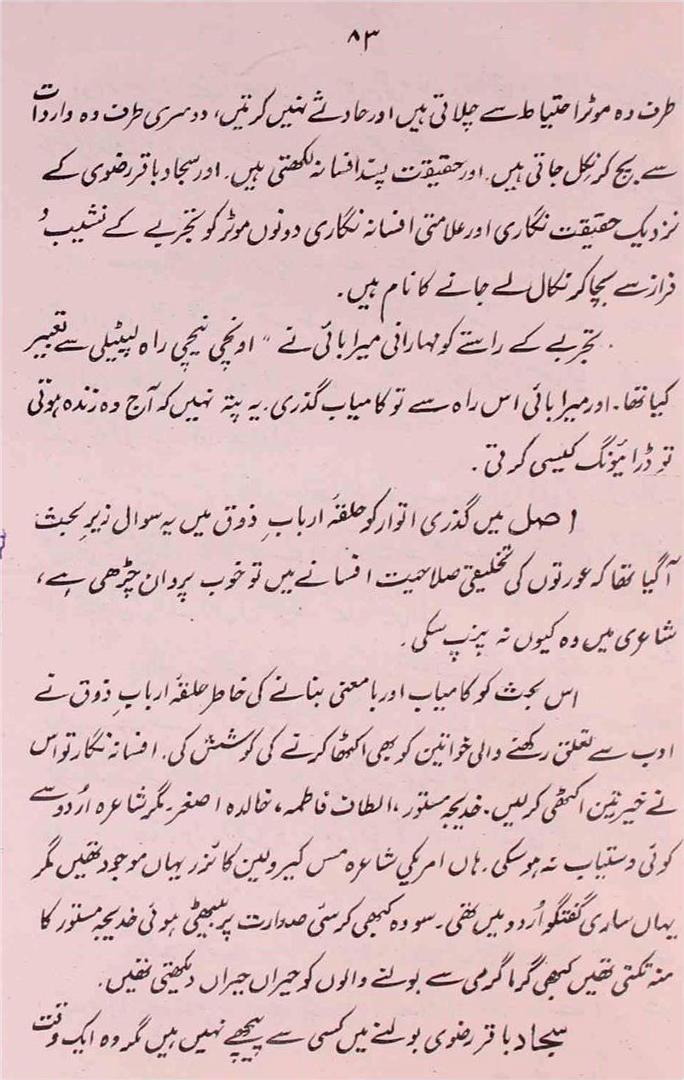 ۸۳
طرف وہ موٹر احتیاط سے چلاتی ہیں اور حادثے نہیں کرتیں، دوسری طرف وہ واردات
سے بچ کر نکل جاتی ہیں۔ اور حقیقت پسند افسانہ لکھتی ہیں۔ اور سجاد باقر رضوی کے
نزدیک حقیقت نگاری اور علامتی افسانہ نگاری دونوں موٹر کو تجربے کے نشیب و
فراز سے بچا کر نکال لے جانے کا نام ہیں۔
تجربے کے راستے کو مہارانی میرا بائی نے " اونچی نیچی راہ لپٹیلی سے تعبیر
کیا تھا۔ اور میرا بائی اس راہ سے تو کامیاب گذری۔ یہ پتہ نہیں کہ آج وہ زندہ ہوتی
تو ڈرائیونگ کیسی کرتی۔
اصل میں گذری اتوار کو حلقۂ اربابِ ذوق میں یہ سوال زیرِ بحث
آ گیا تھا کہ عورتوں کی تخلیقی صلاحیت افسانے میں تو خوب پروان چڑھی ہے،
شاعری میں وہ کیوں نہ پنپ سکی۔
اس بحث کو کامیاب اور بامعنی بنانے کی خاطر حلقۂ اربابِ ذوق نے
ادب سے تعلق رکھنے والی خواتین کو بھی اکٹھا کرنے کی کوشش کی۔ افسانہ نگار تو اس
نے خیر تین اکٹھی کر لیں۔ خدیجہ مستور، الطاف فاطمہ، خالدہ اصغر۔ مگر شاعرہ اُردو سے
کوئی دستیاب نہ ہو سکی۔ ہاں امریکی شاعرہ مس کیرولین کائزر یہاں موجود تھیں مگر
یہاں ساری گفتگو اُردو میں تھی۔ سو وہ کبھی کرسیٔ صدارت پر بیٹھی ہوئی خدیجہ مستور کا
منہ تکتی تھیں کبھی گرما گرمی سے بولنے والوں کو حیراں حیراں دیکھتی تھیں۔
سجاد باقر رضوی بولنے میں کسی سے پیچھے نہیں ہیں مگر وہ ایک وقت